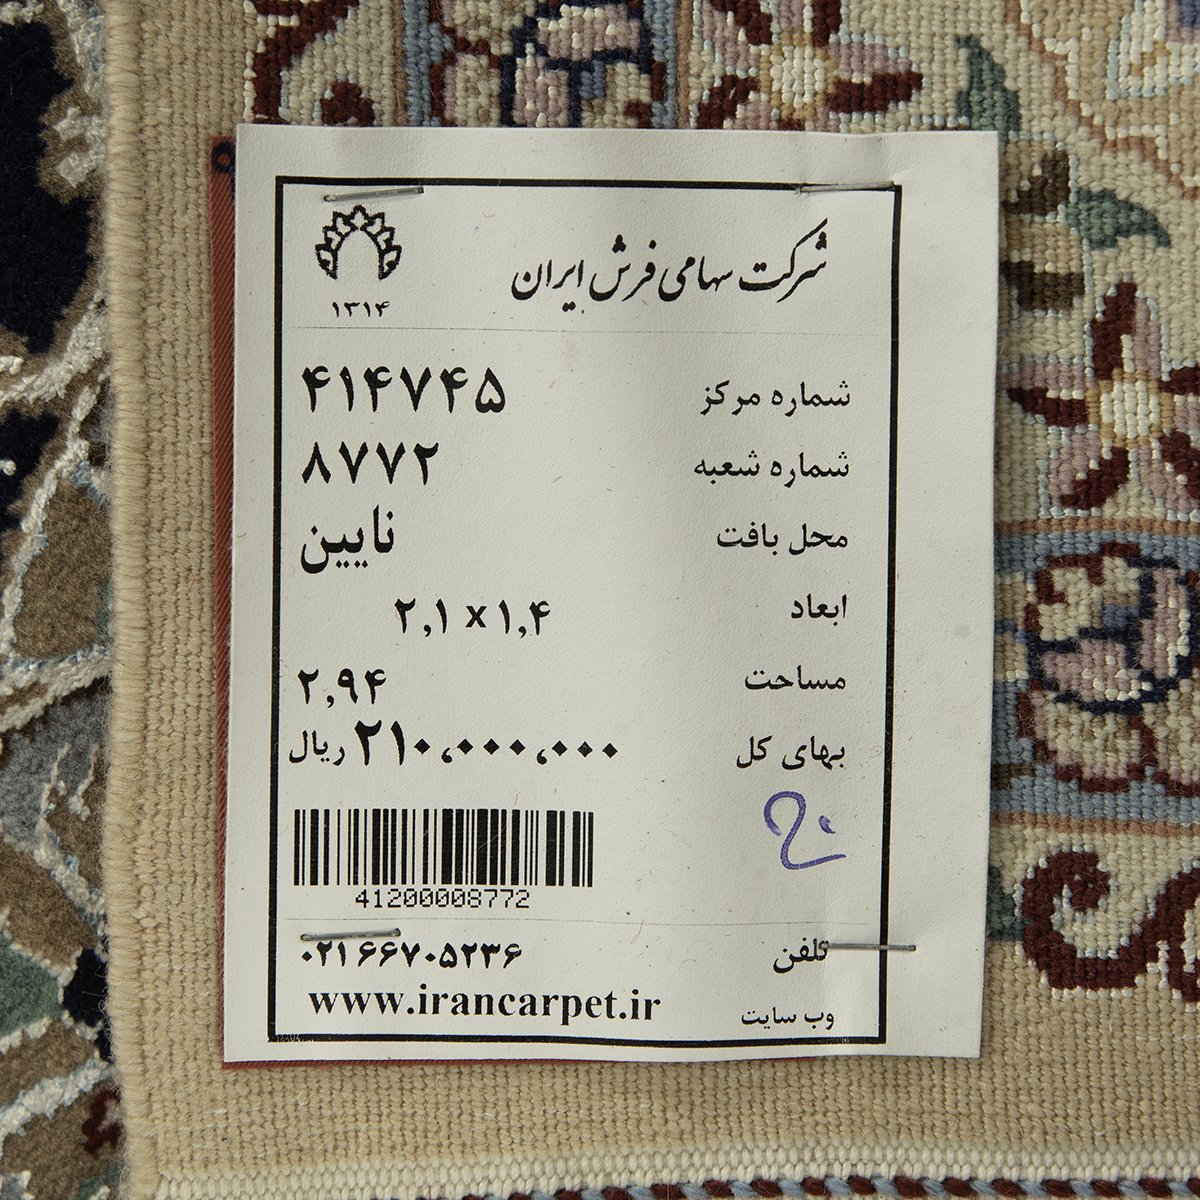 شرکت سهامی فرش ایران
۱۳۱۴
شماره مرکز ۴۱۴۷۴۵
شماره شعبه ۸۷۷۲
محل بافت نایین
ابعاد ۲,۱ x ۱,۴
مساحت ۲,۹۴
بهای کل ۲۱۰,۰۰۰,۰۰۰ ریال
41200008772
تلفن ۰۲۱ ۶۶۷۰۵۲۳۶
وب سایت www.irancarpet.ir